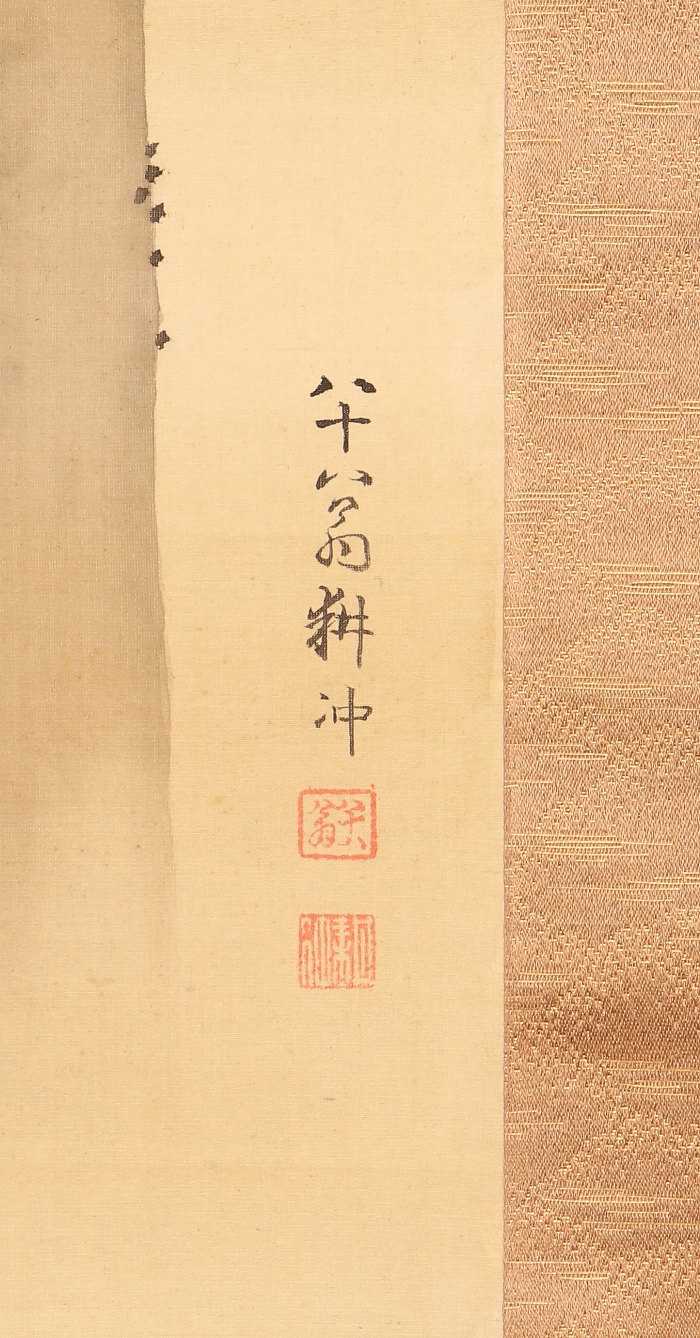 八十八翁耕冲